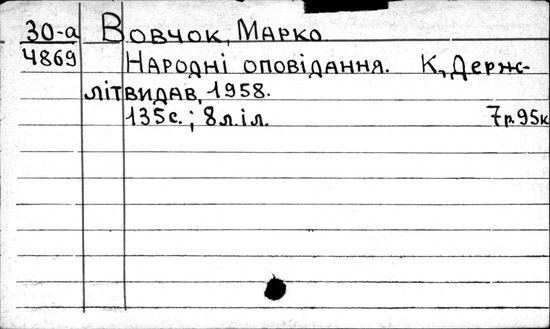 30-а Вовчок, Марко
4869 Народні оповідання. К., Держ-
літвидав, 1958.
135с.; 8л.іл. 7р.95к